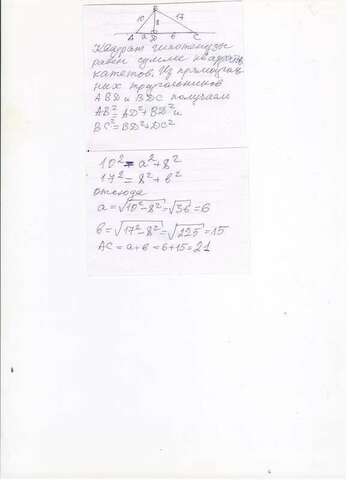 B
10 8 17
A a D в C
Квадрат гипотенузы
равен сумме квадратов
катетов. Из прямоуголь
ных треугольников
ABD и BDC получаем
AB²=AD²+BD² и
BC²=BD²+DC²
10²=a²+8²
17²=8²+в²
отсюда
a=√10²-8²=√36=6
в=√17²-8²=√225=15
AC=a+в=6+15=21